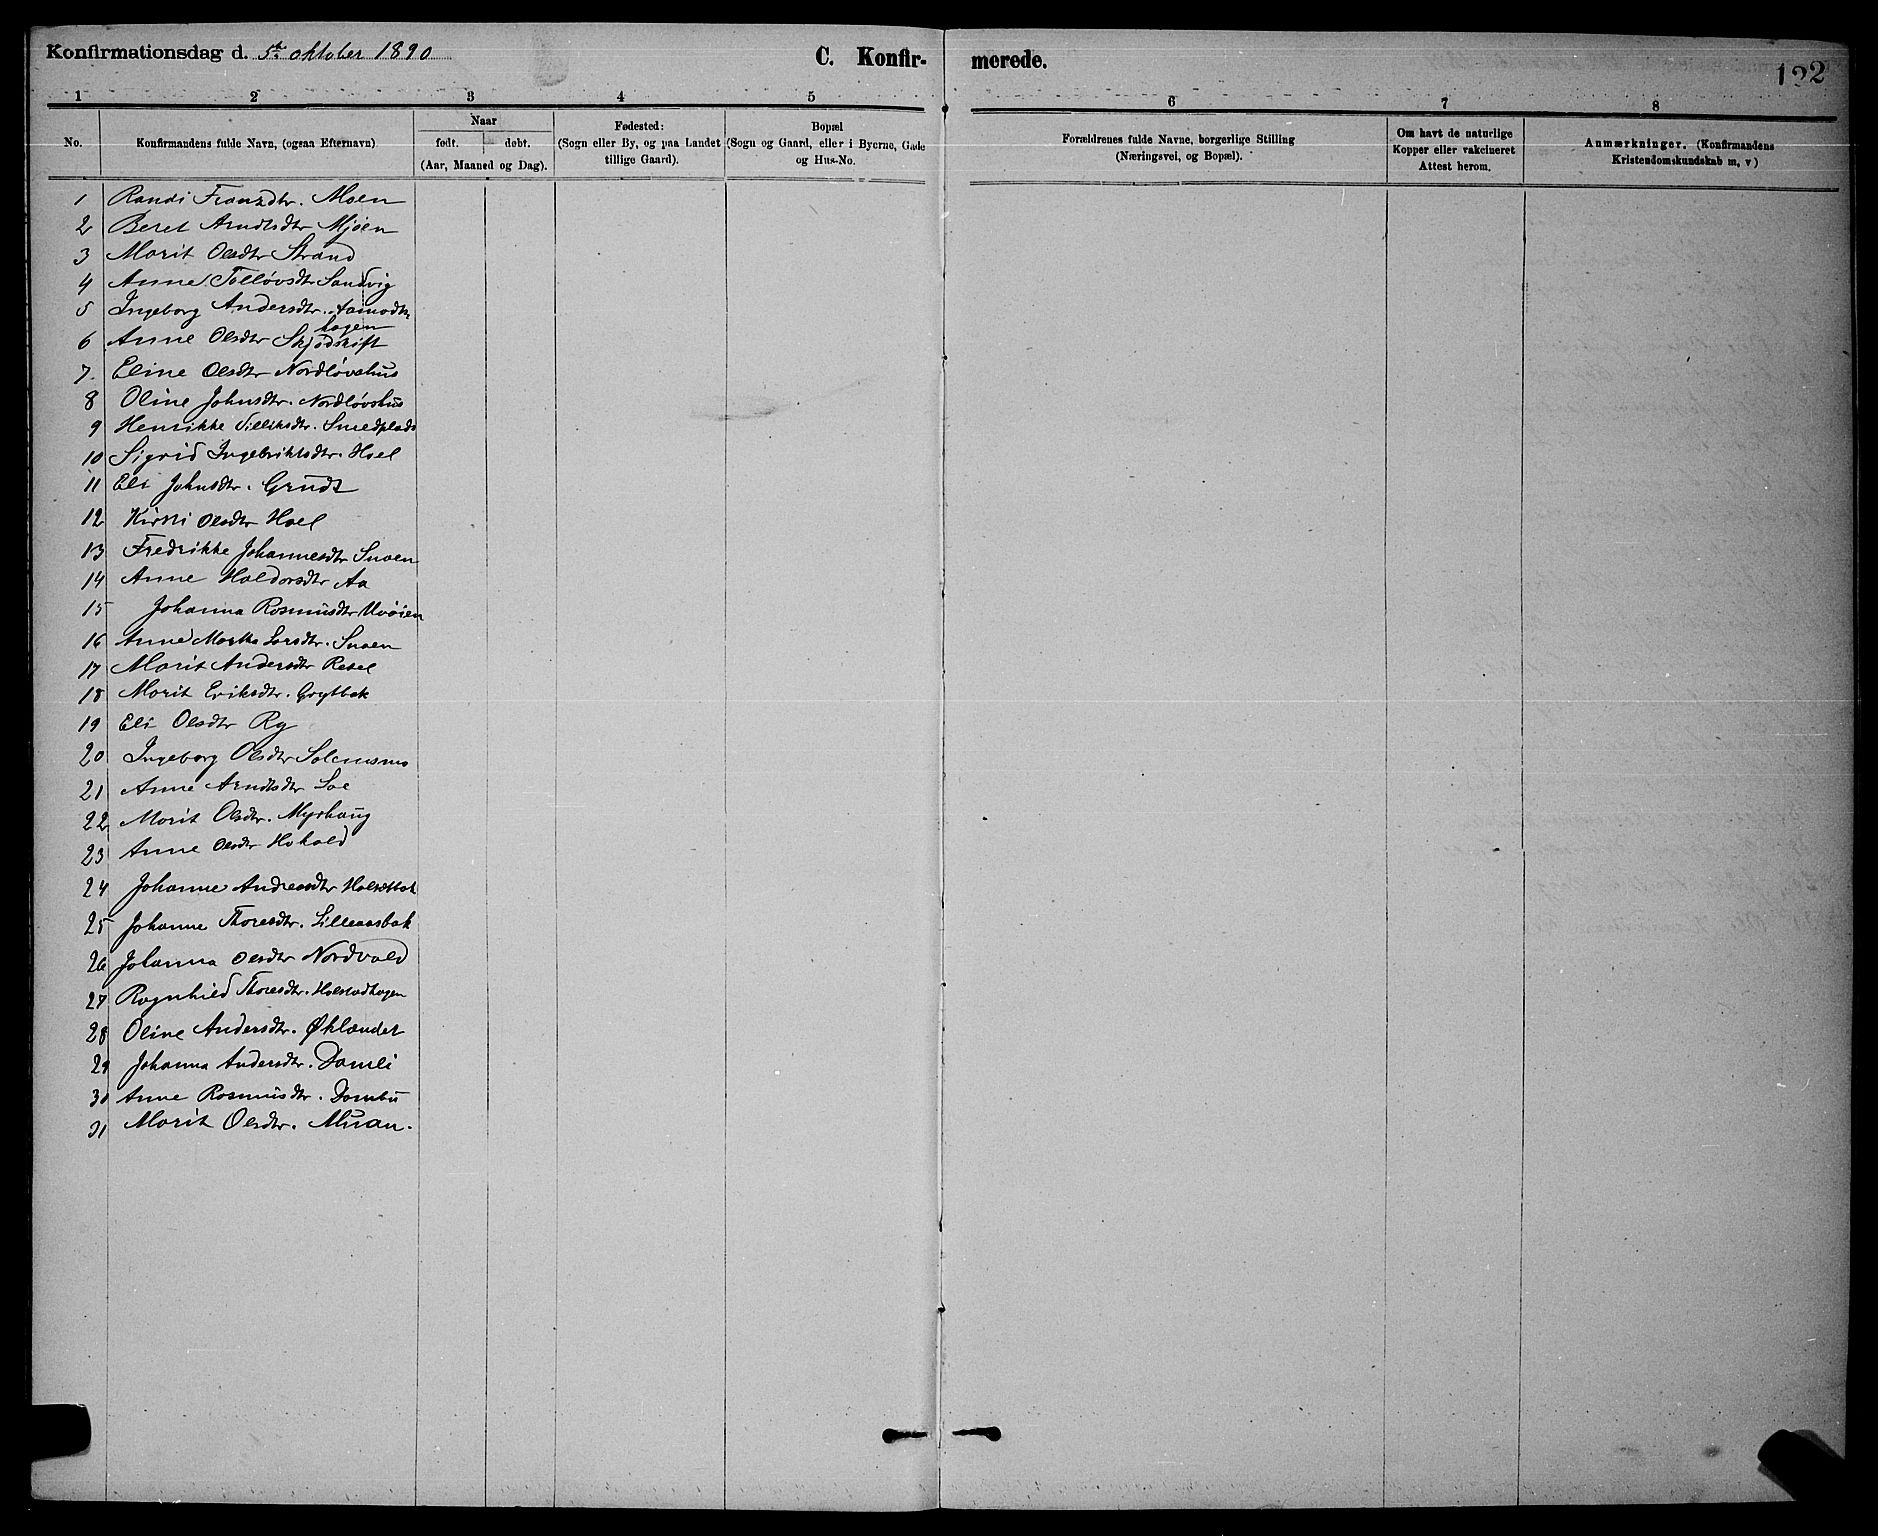 Konfirmationsdag d. 5te oktober 1890
C. Konfir- merede.
122
1 2 3 4 5 6 7 8
No.
Konfirmandens fulde Navn, (ogsaa Efternavn)
Naar
født. døbt.
(Aar, Maaned og Dag).
Fødested:
(Sogn eller By, og paa Landet
tillige Gaard).
Bopæl
(Sogn og Gaard, eller i Byerne, Gade
og Hus-No.
Forældrenes fulde Navne, borgerlige Stilling
(Næringsvei, og Bopæl).
Om havt de naturlige
Kopper eller vakcineret
Attest herom.
Anmærkninger. (Konfirmandens
Kristendomskundskab m, v)
1 Randi Franzdtr. Moen
2 Beret Arndtsdtr Mjøen
3 Marit Olsdtr Strand
4 Anne Tølløvsdtr Sandvig
5 Ingeborg Andersdtr. Aamodts
hagen
6 Anne Olsdtr Skjødskift
7. Eline Olsdtr Nordløvshus
8 Oline Johnsdtr. Nordløvshus
9 Henrikke Sivertsdtr. Smedplads
10 Sigrid Ingebriktsdtr. Hoel
11 Eli Johnsdtr. Grudt
12 Kirsti Olsdtr Hoel
13 Fredrikke Johannesdtr Snoen
14 Anne Haldorsdtr Aa
15 Johanna Rasmusdtr
16 Anne Marta Larsdtr. Snoen
17 Marit Andersdtr Resel
18 Marit Eriksdtr. Grytbak
19 Eli Olsdtr Ry
20 Ingeborg Olsdtr Solemsmo
21 Anne Arndtsdtr Loe
22 Marit Olsdtr. Myrhaug
23 Anne Olsdtr Hokald
24 Johanne Andreasdtr
25 Johanne Thoresdtr. Lilleaasbak
26 Johanna Olsdtr Nordvald
27 Ragnhild Thoresdtr. Halstadhagen
28 Oline Andersdtr. Øklandet
29 Johanna Andersdtr. Damli
30 Anne Rasmusdtr. Dambu
31 Marit Olsdtr. Muan.